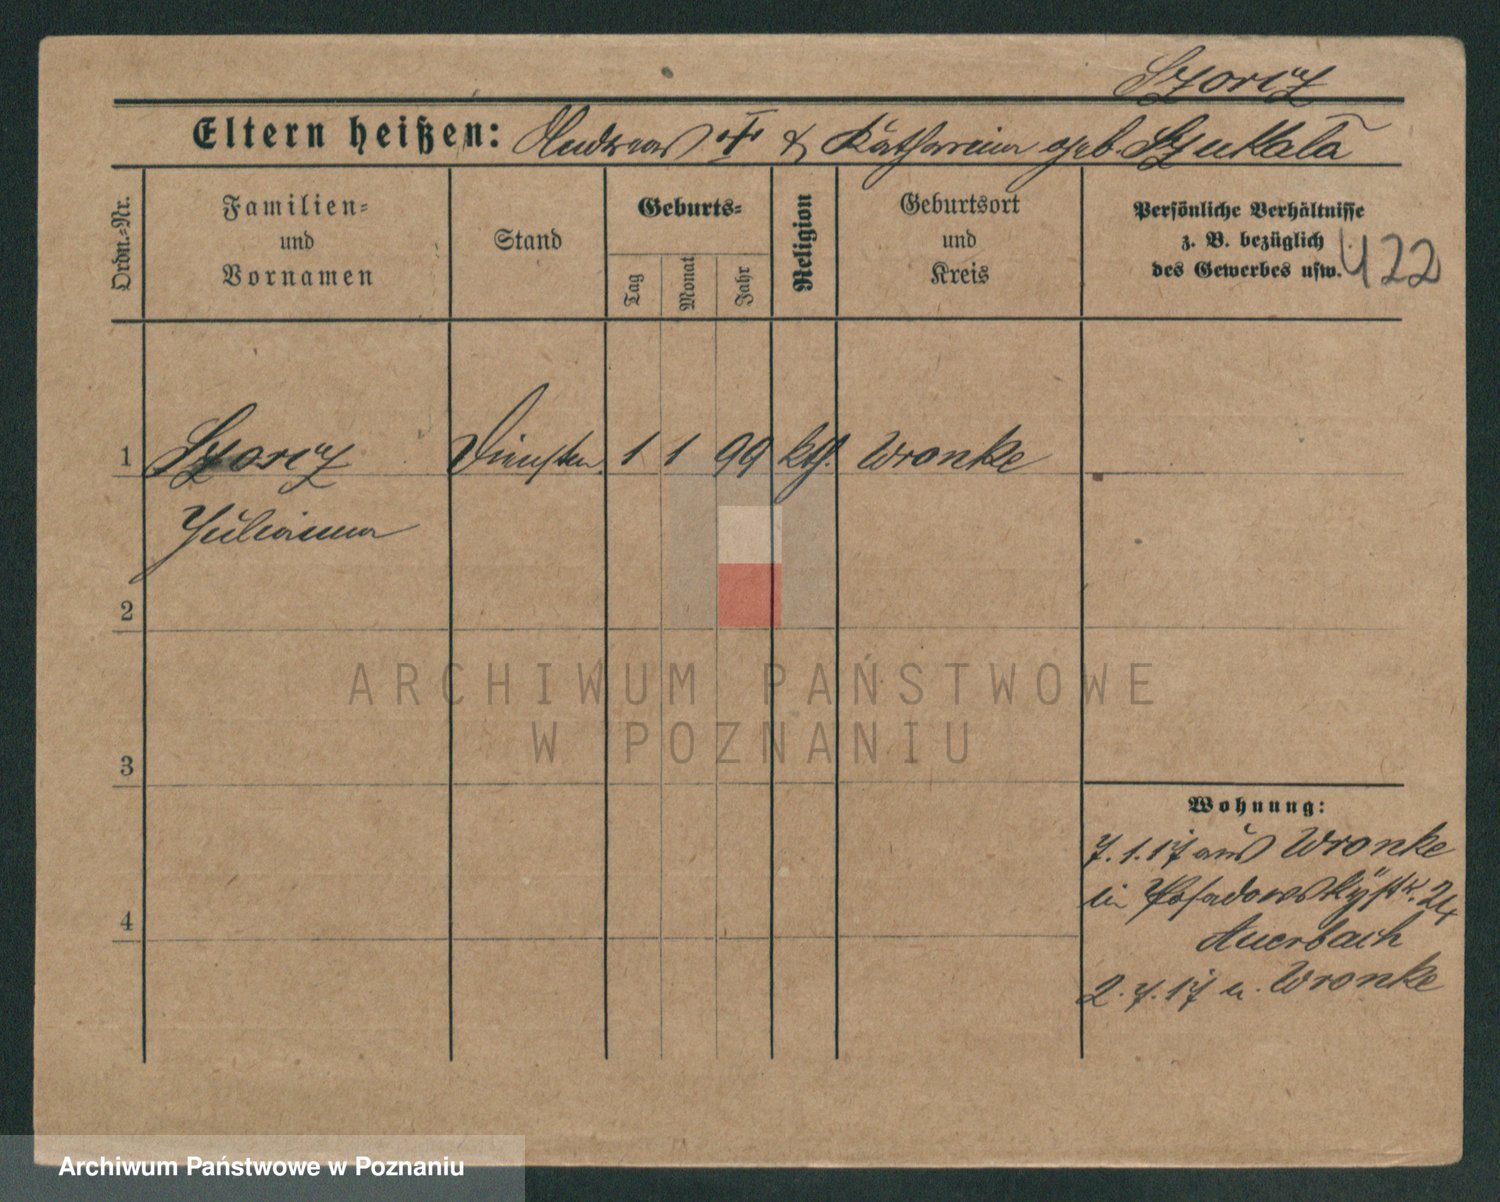 Szoricz
Eltern heißen: Andreas † & Katharina geb. Szukala
Ordn.=Nr.
Familien=
und
Vornamen
Stand
Geburts=
Tag
Monat
Jahr
Religion
Geburtsort
und
Kreis
Persönliche Verhältnisse
z. B. bezüglich
des Gewerbes usw.
422
1 Szoricz 1 1 99 kth. Wronke
Julianna
2
3
4
Wohnung:
7.1.17 aus Wronke
in Posadowskystr. 24
Auerbach
2.7.17 n. Wronke
ARCHIWUM PAŃSTWOWE
W POZNANIU
Archiwum Państwowe w Poznaniu